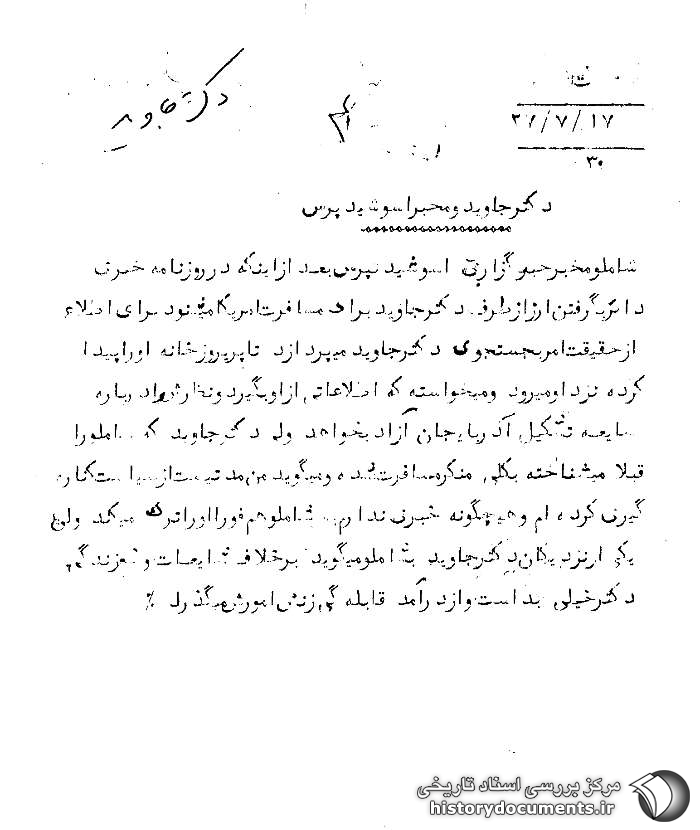 دکتر جاوید
۳۷/۷/۱۷
۳۰
دکتر جاوید و مخبر اسوشیدپرس
شاملو مخبر خبرگزاری اسوشیدپرس بعد از اینکه در روزنامه خبری
دائر بگرفتن ارز از طرف دکتر جاوید برای مسافرت امریکا میشنود برای اطلاع
از حقیقت امر بجستجوی دکتر جاوید میپردازد تا پریروز خانه او را پیدا
کرده نزد او میرود و میخواسته که اطلاعاتی از او بگیرد و نظر او را درباره
شایعه تشکیل آذربایجان آزاد بخواهد ولی دکتر جاوید که شاملو را
قبلا میشناخته بکلی منکر مسافرت شده و میگوید من مدتیست از سیاست کناره
گیری کرده ام و هیچگونه خبری ندارم شاملو هم فورا او را ترک میکند ولی
یکی از نزدیکان دکتر جاوید بشاملو میگوید برخلاف شایعات وضع زندگی
دکتر خیلی بد است و از درآمد قابله گی زنش امورش میگذرد ٪
مرکز بررسی اسناد تاریخی
historydocuments.ir